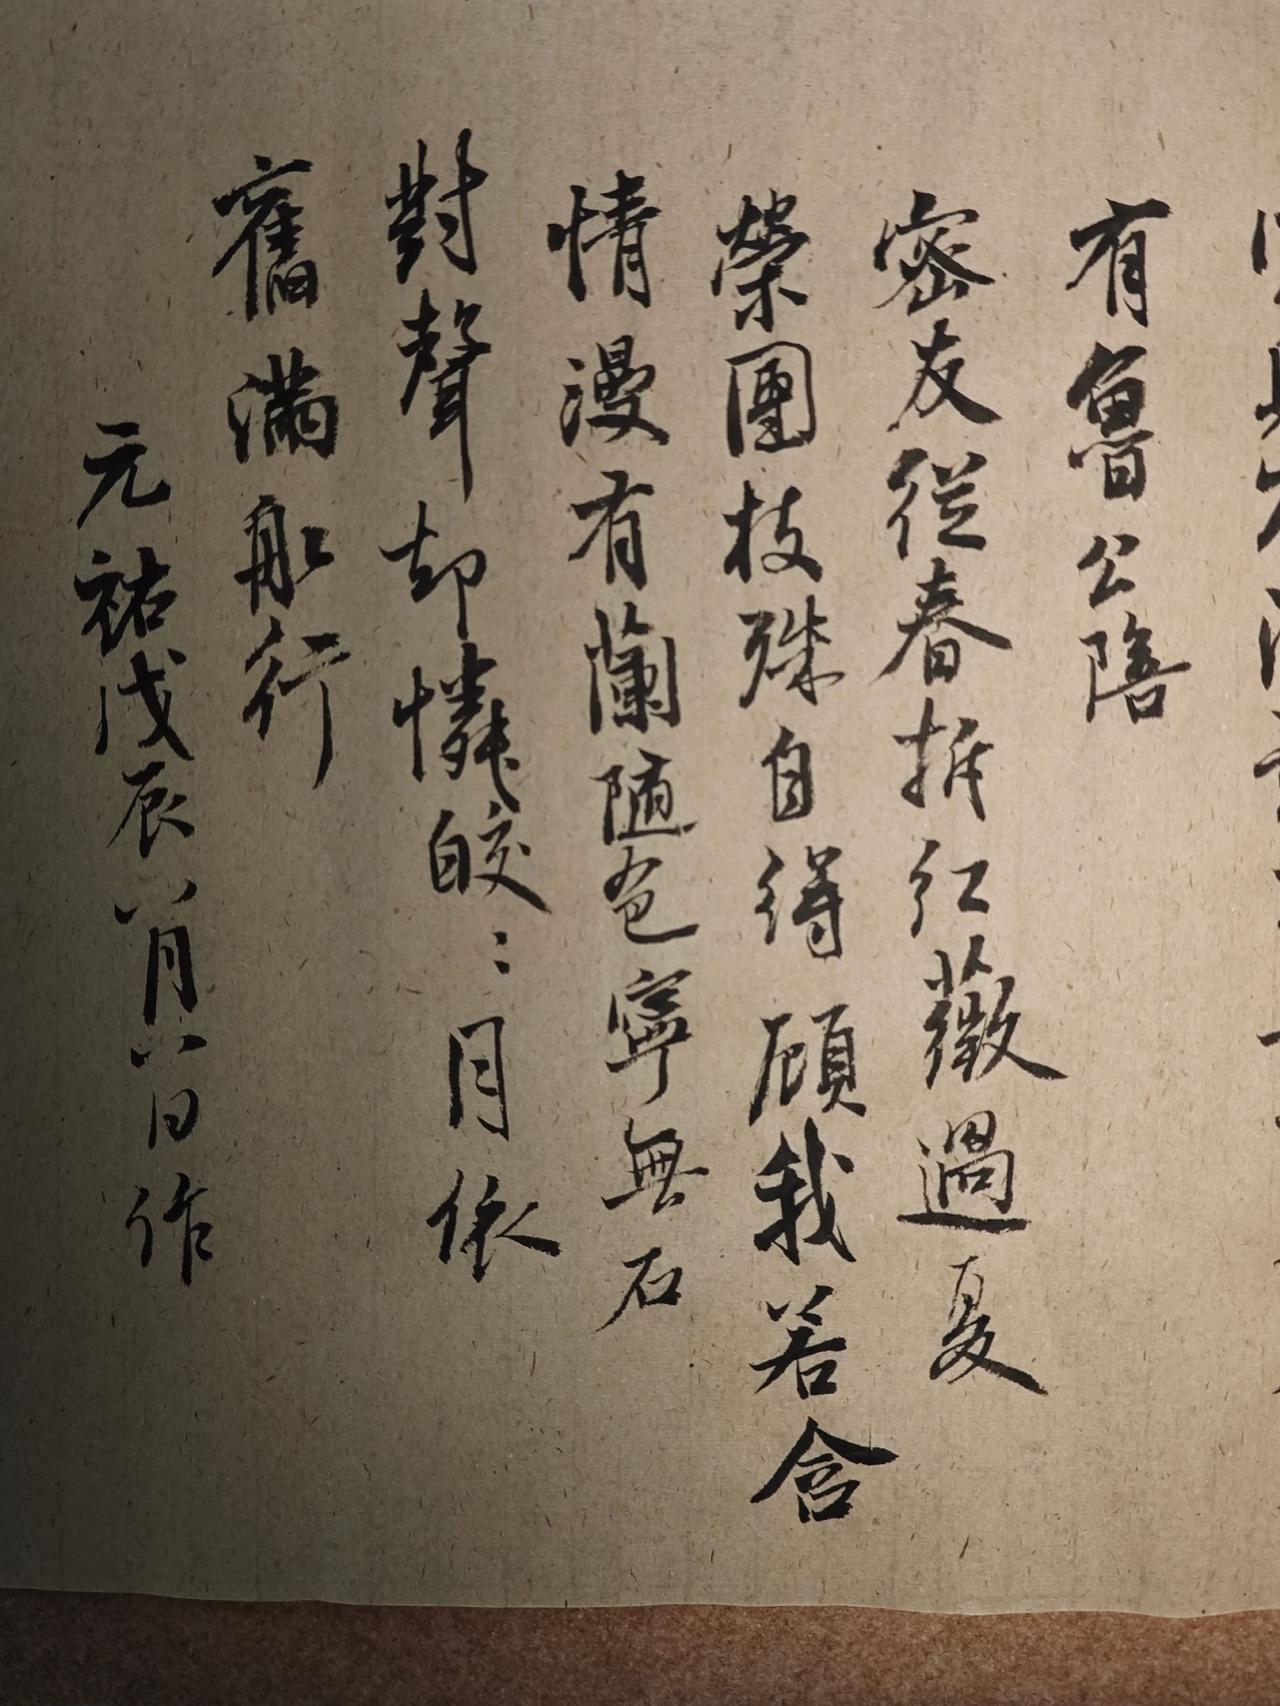 有魯公陪
密友從春拆紅薇過夏
榮團枝殊自得顧我若含
情漫有蘭隨色寧無石
對聲却憐皎〻月依
舊滿船行
元祐戊辰八月八日作